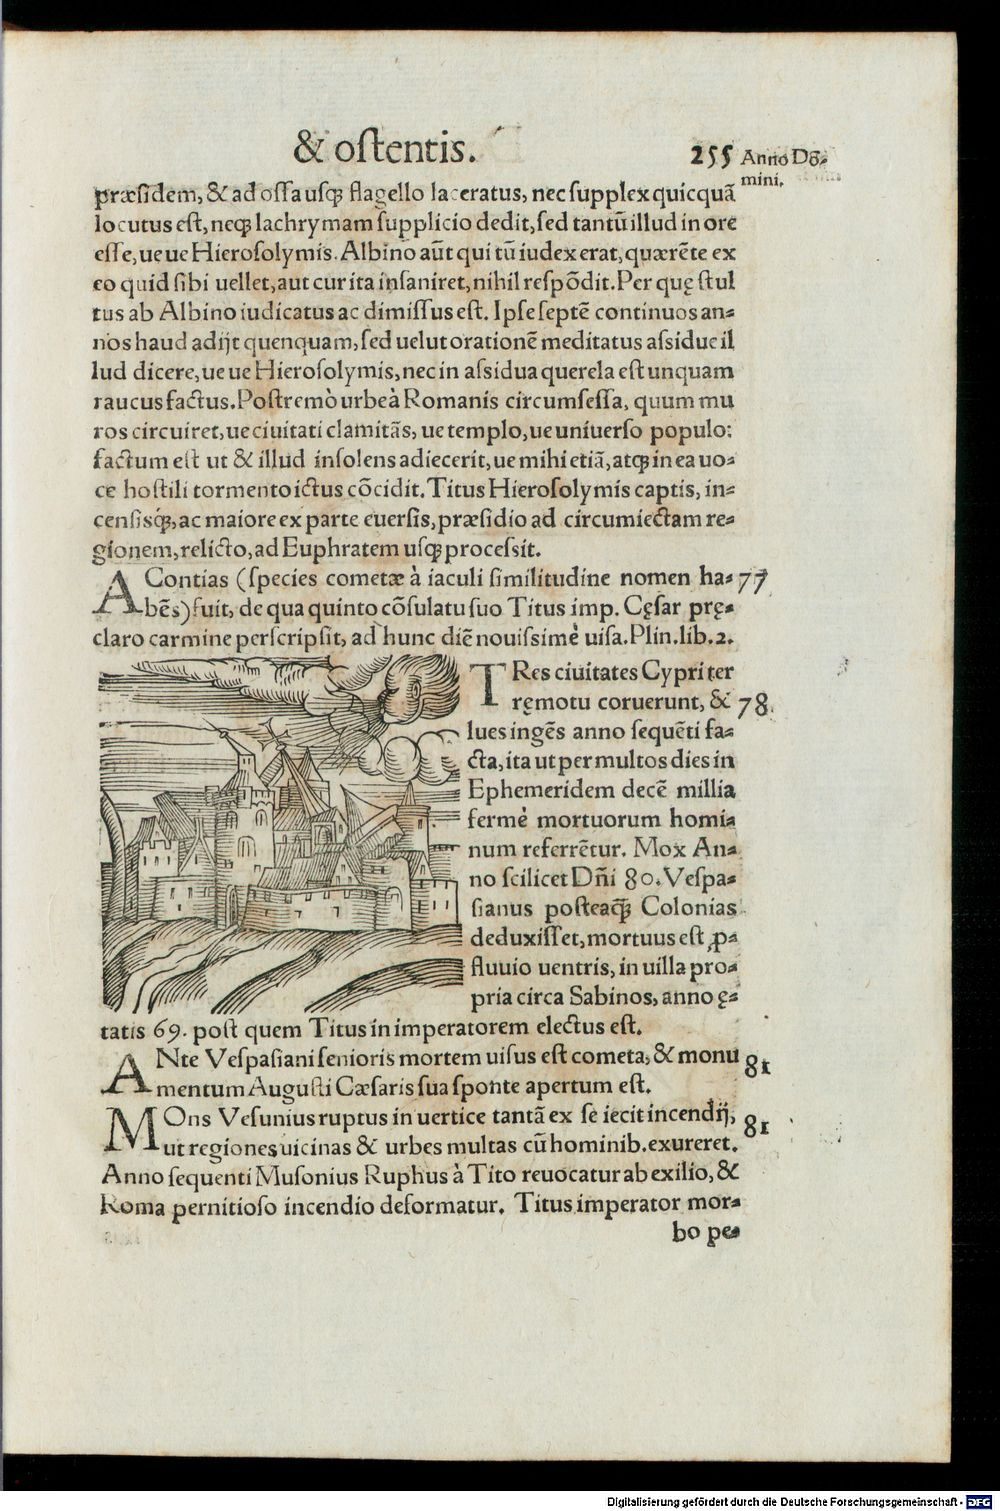 & ostentis. 255 Anno Dō⸗
mini.
præsidem, & ad ossa usq; flagello laceratus, nec supplex quicquā
locutus est, neq; lachrymam supplicio dedit, sed tantū illud in ore
esse, ue ue Hierosolymis. Albino aūt qui tū iudex erat, quærēte ex
eo quid sibi uellet, aut cur ita insaniret, nihil respōdit. Per quę stul
tus ab Albino iudicatus ac dimissus est. Ipse septē continuos an⸗
nos haud adijt quenquam, sed uelut orationē meditatus assidue il
lud dicere, ue ue Hierosolymis, nec in assidua querela est unquam
raucus factus. Postremò urbe à Romanis circumsessa, quum mu
ros circuiret, ue ciuitati clamitās, ue templo, ue uniuerso populo:
factum est ut & illud insolens adiecerit, ue mihi etiā, atq; in ea uo⸗
ce hostili tormento ictus cōcidit. Titus Hierosolymis captis, in⸗
censisq́;, ac maiore ex parte euersis, præsidio ad circumiectam re⸗
gionem, relicto, ad Euphratem usq; processit.
AContias (species cometæ à iaculi similitudine nomen ha⸗ 77
bēs) fuit, de qua quinto cōsulatu suo Titus imp. Cęsar prę⸗
claro carmine perscripsit, ad hunc diē nouissimè uisa. Plin. lib. 2.
TRes ciuitates Cypri ter
ręmotu coruerunt, & 78.
lues ingēs anno sequēti fa⸗
cta, ita ut per multos dies in
Ephemeridem decē millia
fermè mortuorum homi⸗
num referrētur. Mox An⸗
no scilicet Dn̄i 80. Vespa⸗
sianus posteaq̄; Colonias
deduxisset, mortuus est ꝓ⸗
fluuio uentris, in uilla pro⸗
pria circa Sabinos, anno ę⸗
tatis 69. post quem Titus in imperatorem electus est.
ANte Vespasiani senioris mortem uisus est cometa, & monu 81
mentum Augusti Cæsaris sua sponte apertum est.
MOns Vesunius ruptus in uertice tantā ex se iecit incendij, 81
ut regiones uicinas & urbes multas cū hominib. exureret.
Anno sequenti Musonius Ruphus à Tito reuocatur ab exilio, &
Roma pernitioso incendio deformatur. Titus imperator mor⸗
bo pe⸗
Digitalisierung gefördert durch die Deutsche Forschungsgemeinschaft - DFG